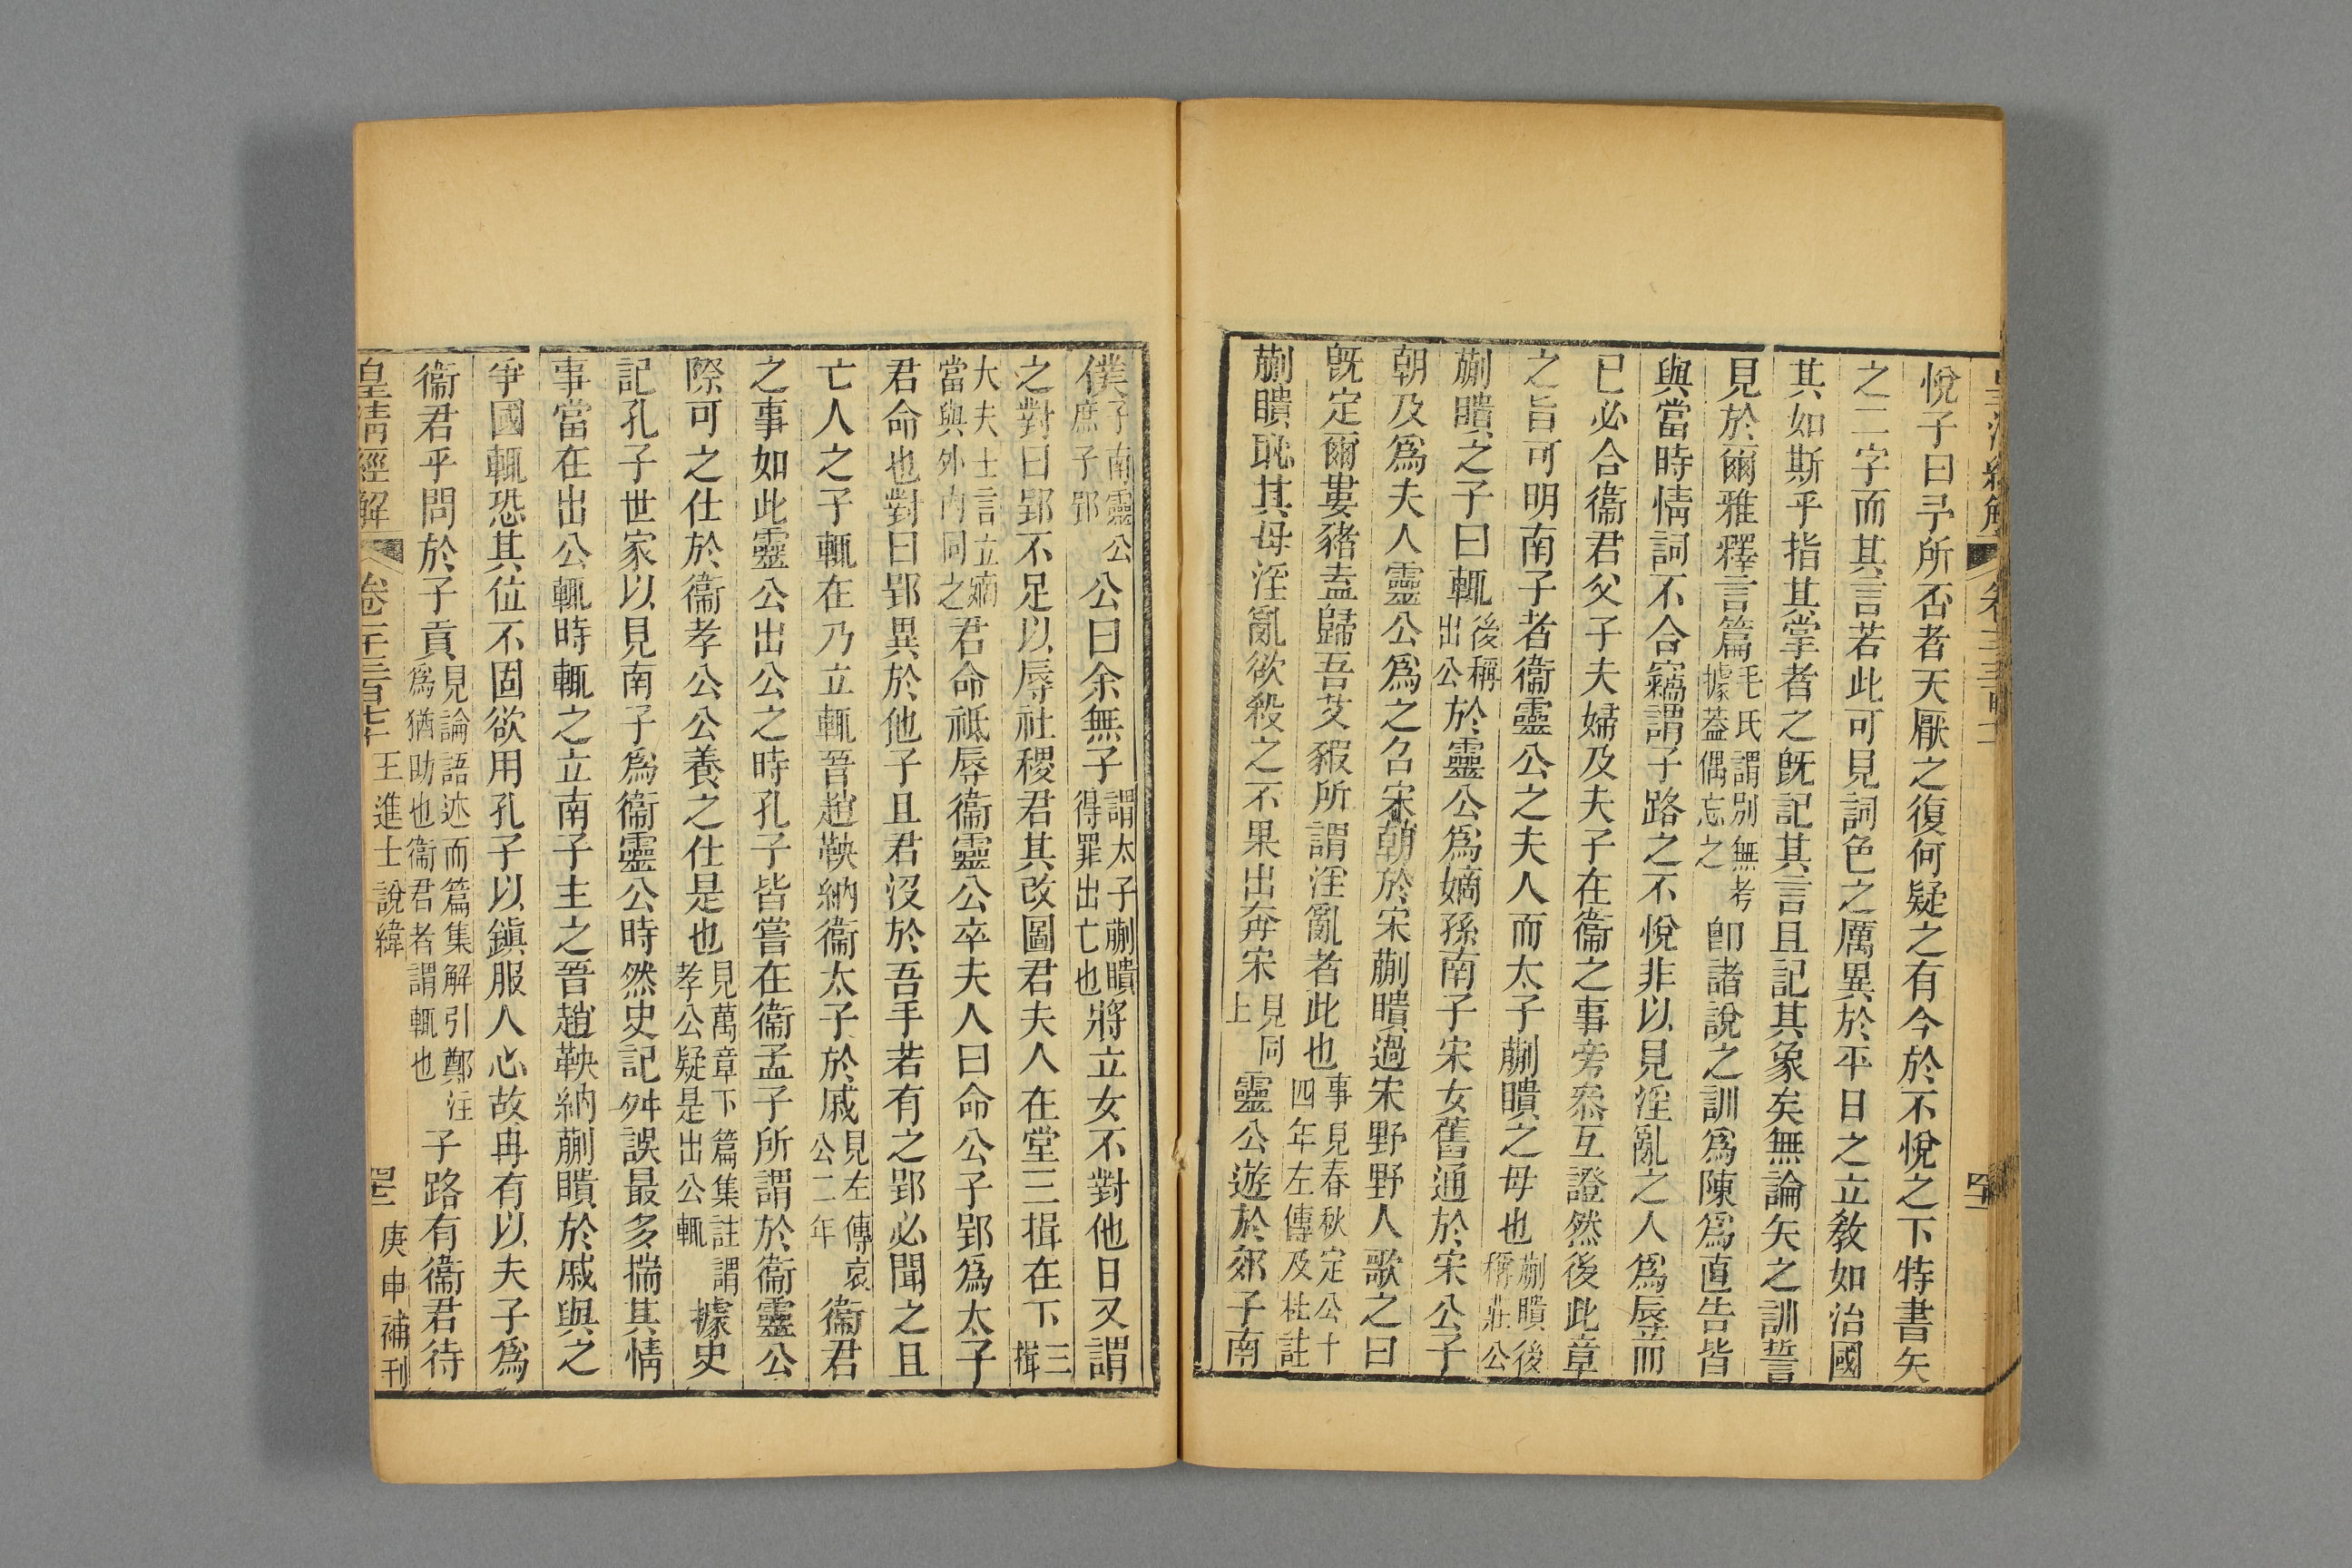 悅子曰予所否者天厭之復何疑之有今於不悅之下特書矢
之二字而其言若此可見詞色之厲異於平日之立敎如治國
其如斯乎指其掌者之旣記其言且記其象矣無論矢之訓誓
見於爾雅釋言篇毛氏謂別無考據葢偶忘之卽諸說之訓爲陳爲直告皆
與當時情詞不合竊謂子路之不悅非以見淫亂之人爲辱而
已必合衞君父子夫婦及夫子在衞之事旁叅互證然後此章
之旨可明南子者衞靈公之夫人而太子蒯聵之母也蒯聵後稱莊公
蒯聵之子曰輒後稱出公於靈公爲嫡孫南子宋女舊通於宋公子
朝及爲夫人靈公爲之召宋朝於宋蒯聵過宋野野人歌之曰
旣定爾婁豬盍歸吾艾豭所謂淫亂者此也事見春秋定公十四年左傳及杜註
蒯聵恥其母淫亂欲殺之不果出奔宋見同上靈公遊於郊子南
僕子南靈公庶子郢公曰余無子謂太子蒯聵得罪出亡也將立女不對他日又謂
之對曰郢不足以辱社稷君其改圖君夫人在堂三揖在下三揖
大夫士言立嫡當與外內同之君命祗辱衞靈公卒夫人曰命公子郢爲太子
君命也對曰郢異於他子且君沒於吾手若有之郢必聞之且
亡人之子輒在乃立輒晉趙鞅納衞太子於戚見左傳哀公二年衞君
之事如此靈公出公之時孔子皆嘗在衞孟子所謂於衞靈公
際可之仕於衞孝公公養之仕是也見萬章下篇集註謂孝公疑是出公輒據史
記孔子世家以見南子爲衞靈公時然史記舛誤最多揣其情
事當在出公輒時輒之立南子主之晉趙鞅納蒯聵於戚與之
爭國輒恐其位不固欲用孔子以鎭服人心故冉有以夫子爲
衞君乎問於子貢見論語述而篇集解引鄭注爲猶助也衞君者謂輒也子路有衞君待
皇清經解 卷一千三百七十 王進士說緯 四三 庚申補刊